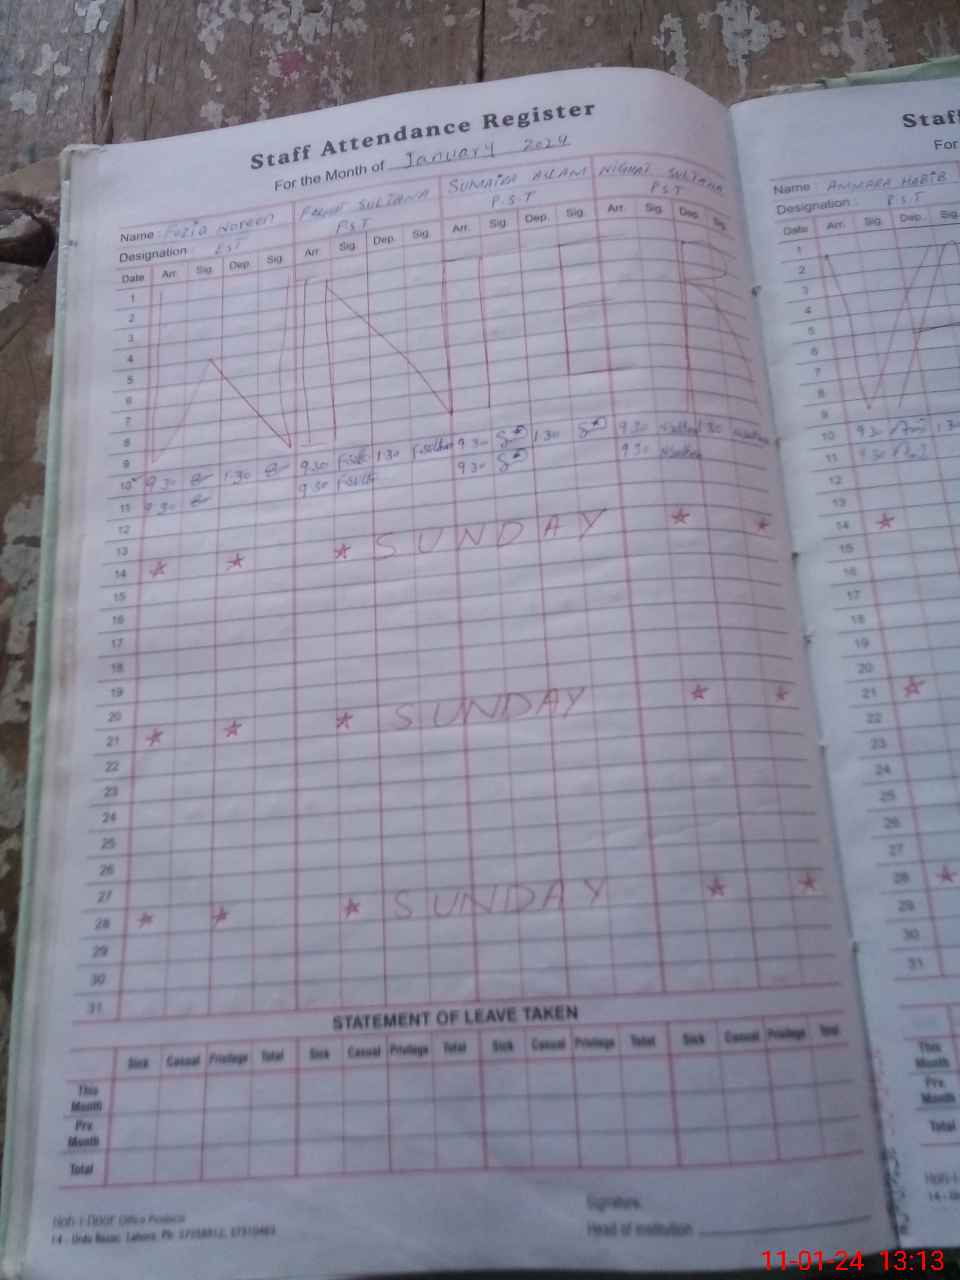 Staff Attendance Register
For the Month of January 2024
Name : Fozia Noreen FARHAT SULTANA SUMAIRA ASLAM NIGHAT SULTANA
Designation : EST P.S.T P.S.T P.S.T
Date Arr. Sig. Dep. Sig. Arr. Sig. Dep. Sig. Arr. Sig. Dep. Sig. Arr. Sig. Dep. Sig.
WINTER
1
2
3
4
5
6
7
8
9
10 9 30 1:30 9 30 1:30 9 30 1:30 9 30 1:30
11 9 30 9 30 9 30 9 30
12
13
14 SUNDAY
15
16
17
18
19
20
21 SUNDAY
22
23
24
25
26
27
28 SUNDAY
29
30
31
STATEMENT OF LEAVE TAKEN
Sick Casual Privilege Total Sick Casual Privilege Total Sick Casual Privilege Total Sick Casual Privilege Total
This Month
Pre. Month
Total
Signature
Head of Institution
14 - Urdu Bazar, Lahore. Ph:
Staff
For
Name : AMMARA HABIB
Designation : P.S.T
Date Arr. Sig. Dep.
1
2
3
4
5
6
7
8
9
10 9 30 1:30
11 9 30
12
13
14
15
16
17
18
19
20
21
22
23
24
25
26
27
28
29
30
31
This Month
Pre. Month
Total
11-01-24 13:13